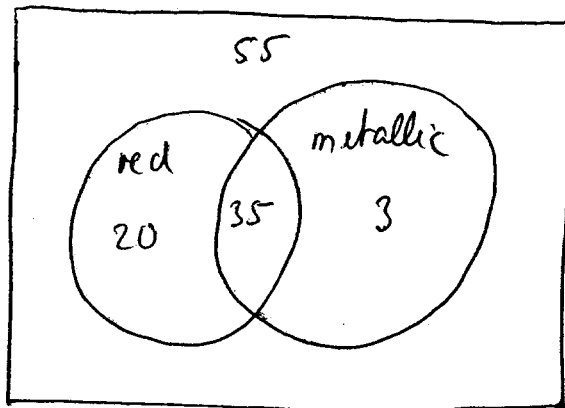 55
red metallic
20 35 3